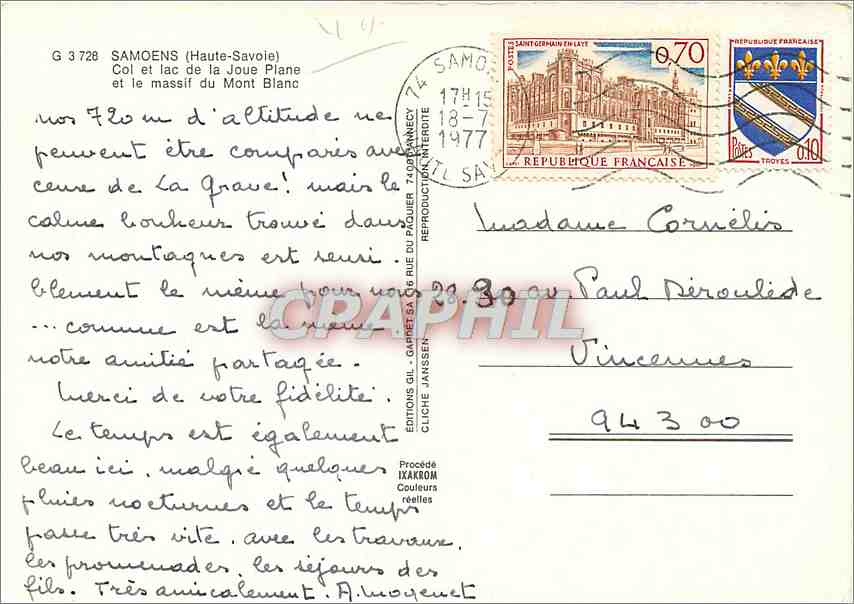 G 3 728 SAMOENS (Haute-Savoie)
Col et lac de la Joue Plane
et le massif du Mont Blanc
nos 720 m d'altitude ne
peuvent être comparés avec
ceux de La Grave! mais le
calme bonheur trouvé dans
nos montagnes est sensi-
blement le même pour nous
... comme est la même
notre amitié partagée.
Merci de votre fidélité.
Le temps est également
beau ici, malgré quelques
pluies nocturnes et le temps
passe très vite, avec les travaux,
les promenades, les séjours des
fils. Très amicalement. A. Mogenet
ÉDITIONS GIL - GARDET SA 16 RUE DU PAQUIER 74000 ANNECY
CLICHE JANSSEN REPRODUCTION INTERDITE
Procédé
IXAKROM
Couleurs
réelles
74 SAMO
17H15
18-7
1977
HTE SAV
POSTES SAINT-GERMAIN-EN-LAYE
0,70
REPUBLIQUE FRANÇAISE
REPUBLIQUE FRANÇAISE
POSTES 0,10
TROYES
Madame Cornélis
28.30 av Paul Déroulède
Vincennes
94300
CPAPHIL